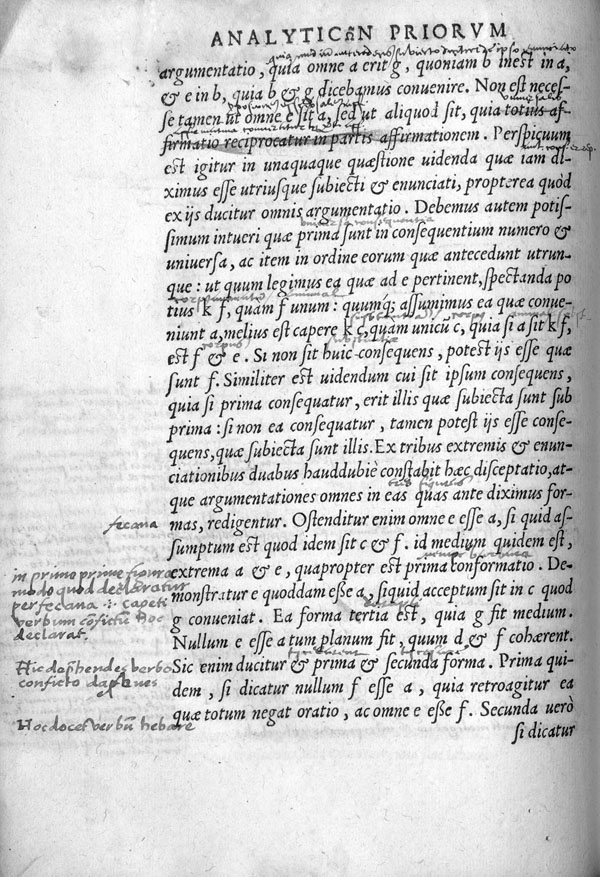 ANALYTICῶN PRIORVM
argumentatio, quia omne a erit g, quoniam b inest in a,
& e in b, quia b & g dicebamus conuenire. Non est neces-
se tamen ut omne e sit a, sed ut aliquod sit, quia totius af-
firmatio reciprocatur in partis affirmationem. Perspicuum
est igitur in unaquaque quæstione uidenda quæ iam di-
ximus esse utriusque subiecti & enunciati, propterea quòd
ex ijs ducitur omnis argumentatio. Debemus autem potis-
simum intueri quæ prima sunt in consequentium numero &
uniuersa, ac item in ordine eorum quæ antecedunt utrun-
que: ut quum legimus ea quæ ad e pertinent, spectanda po
tius k f, quam f unum: quumq; assumimus ea quæ conue-
niunt a, melius est capere k c, quam unicũ c, quia si a sit k f,
est f & e. Si non sit huic consequens, potest ijs esse quæ
sunt f. Similiter est uidendum cui sit ipsum consequens,
quia si prima consequatur, erit illis quæ subiecta sunt sub
prima: si non ea consequatur, tamen potest ijs esse conse-
quens, quæ subiecta sunt illis. Ex tribus extremis & enun-
ciationibus duabus hauddubiè constabit hæc disceptatio, at-
que argumentationes omnes in eas quas ante diximus for-
fecana
mas, redigentur. Ostenditur enim omne e esse a, si quid as-
sumptum est quod idem sit c & f. id medium quidem est,
extrema a & e, quapropter est prima conformatio. De-
in primo prime figura
modo quod declaratur
per fecana : Capeti
verbum confictũ hoc
declarat.
monstratur e quoddam esse a, siquid acceptum sit in c quod
g conueniat. Ea forma tertia est, quia g fit medium.
Nullum e esse a tum planum fit, quum d & f cohærent.
Hic dosphendes verbo
conficto
Sic enim ducitur & prima & secunda forma. Prima qui-
dem, si dicatur nullum f esse a, quia retroagitur ea
Hoc docet verbũ hebare
quæ totum negat oratio, ac omne e esse f. Secunda uerò
si dicatur